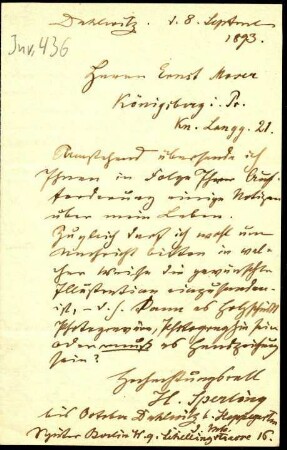 Dahlwitz. d. 8. Septemb.
1893.
Inv. 436
Herrn Ernst Moser
Königsberg i. Pr.
Kn. Langg. 21.
übersende ich
Ihnen in Folge Ihrer Auf-
forderung einige Notizen
über mein Leben.
Zugleich darf ich wohl um
Nachricht bitten in wel-
cher Weise die gewünschte
Illustration einzusenden
ist, – d. h. kann es Holzschnitt
Photogravüre, Photographie sein
oder muß es Handzeichnung
sein?
Hochachtungsvoll
H. Sperling
bis October Dahlwitz b. Hoppegarten
Später Berlin W. 9. Schellingstrasse 16.